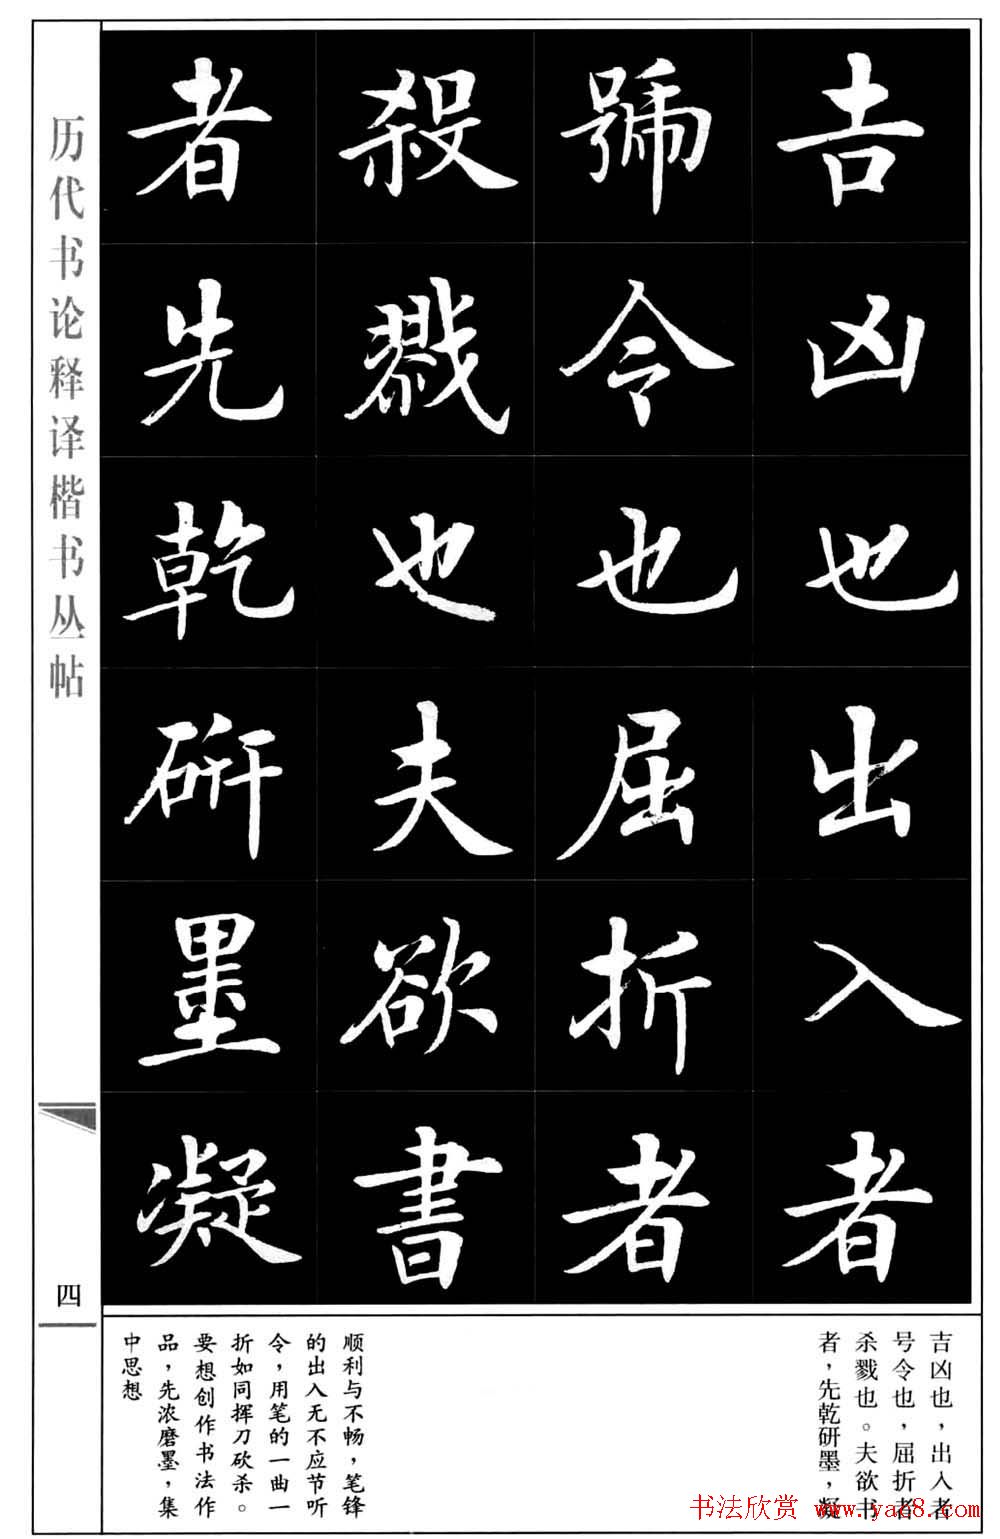 吉凶也出入者
號令也屈折者
殺戮也夫欲書
者先乾研墨凝
历代书论释译楷书丛帖
四
吉凶也，出入者
号令也，屈折者
杀戮也。夫欲书
者，先乾研墨，凝
顺利与不畅，笔锋
的出入无不应节听
令，用笔的一曲一
折如同挥刀砍杀。
要想创作书法作
品，先浓磨墨，集
中思想
书法欣赏 www.yac8.com